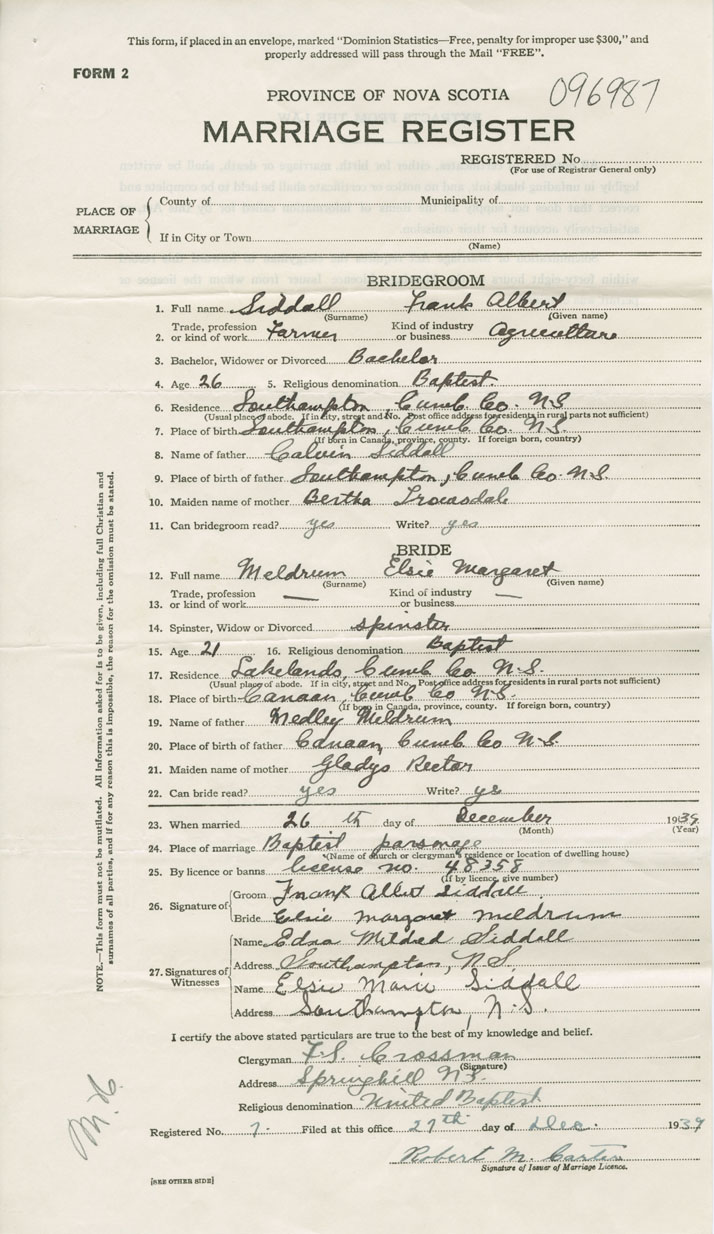 This form, if placed in an envelope, marked "Dominion Statistics—Free, penalty for improper use $300," and
properly addressed will pass through the Mail "FREE".
FORM 2
096987
PROVINCE OF NOVA SCOTIA
MARRIAGE REGISTER
REGISTERED No.
(For use of Registrar General only)
PLACE OF MARRIAGE
County of Municipality of
If in City or Town
(Name)
BRIDEGROOM
1. Full name Siddall Frank Albert
(Surname) (Given name)
2. Trade, profession or kind of work Farmer Kind of industry or business Agriculture
3. Bachelor, Widower or Divorced Bachelor
4. Age 26 5. Religious denomination Baptist.
6. Residence Southampton, Cumb. Co. N.S.
(Usual place of abode. If in city, street and No. Post office address for residents in rural parts not sufficient)
7. Place of birth Southampton, Cumb. Co. N.S.
(If born in Canada, province, county. If foreign born, country)
8. Name of father Calvin Siddall
9. Place of birth of father Southampton, Cumb Co. N.S.
10. Maiden name of mother Bertha Trowsdale
11. Can bridegroom read? yes Write? yes
BRIDE
12. Full name Meldrum Elsie Margaret
(Surname) (Given name)
13. Trade, profession or kind of work — Kind of industry or business —
14. Spinster, Widow or Divorced spinster
15. Age 21 16. Religious denomination Baptist
17. Residence Lakelands, Cumb Co N.S.
(Usual place of abode. If in city, street and No. Post office address for residents in rural parts not sufficient)
18. Place of birth Canaan, Cumb Co N.S.
(If born in Canada, province, county. If foreign born, country)
19. Name of father Medley Meldrum
20. Place of birth of father Canaan, Cumb. Co N.S.
21. Maiden name of mother Gladys Rector
22. Can bride read? yes Write? yes
23. When married 26 th day of December 1939
(Month) (Year)
24. Place of marriage Baptist parsonage
(Name of church or clergyman's residence or location of dwelling house)
25. By licence or banns license no. 48358
(If by licence, give number)
26. Signature of
Groom Frank Albert Siddall
Bride Elsie Margaret Meldrum
27. Signatures of Witnesses
Name Edna Mildred Siddall
Address Southampton, N.S.
Name Elsie Marie Siddall
Address Southampton, N.S.
I certify the above stated particulars are true to the best of my knowledge and belief.
Clergyman F.S. Crossman
(Signature)
Address Springhill N.S.
Religious denomination United Baptist
Registered No. 7. Filed at this office 27th day of Dec. 1939
Robert M. Carter
Signature of Issuer of Marriage Licence.
[SEE OTHER SIDE]
NOTE.—This form must not be mutilated. All information asked for is to be given, including full Christian and
surnames of all parties, and if for any reason this is impossible, the reason for the omission must be stated.